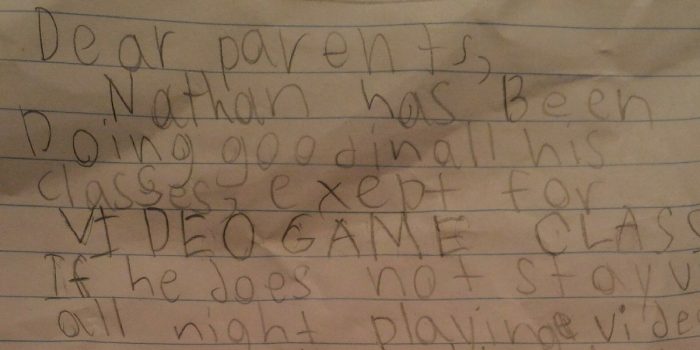 Dear parents,
Nathan has Been
Doing good in all his
classes, exept for
VIDEO GAME CLASS
If he does not stay u
all night playing vide